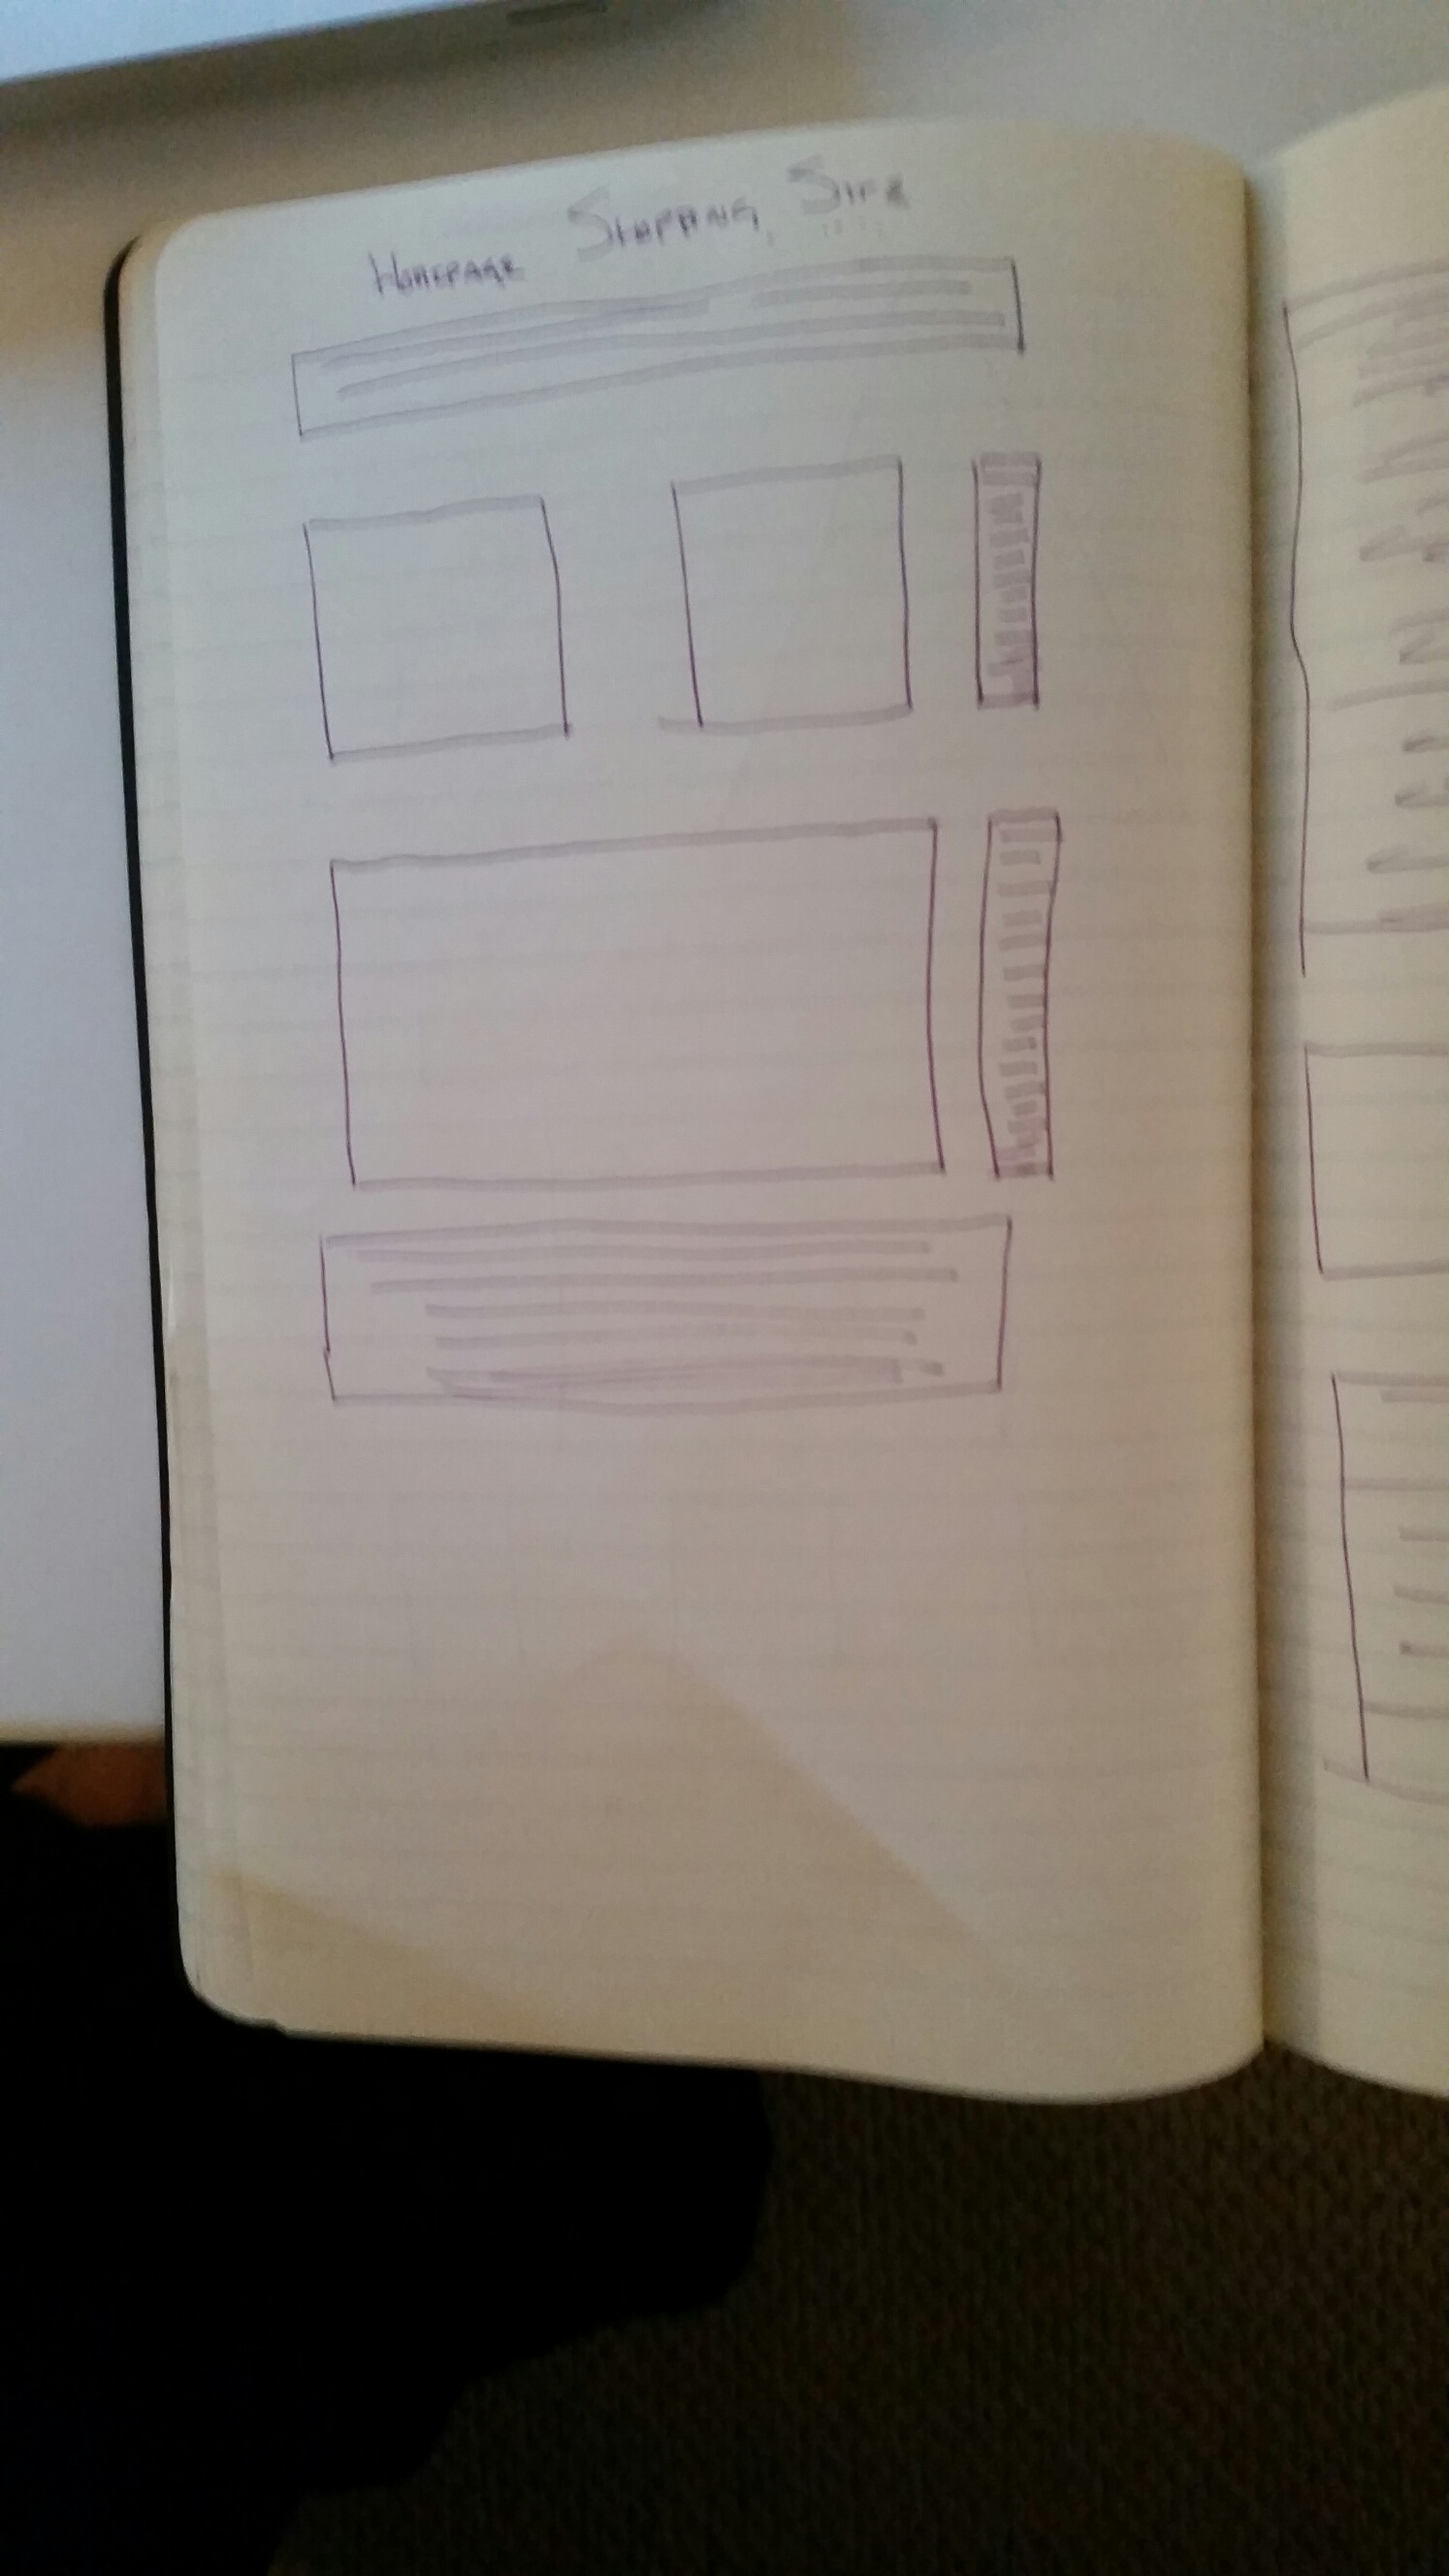 Homepage Shopping Site